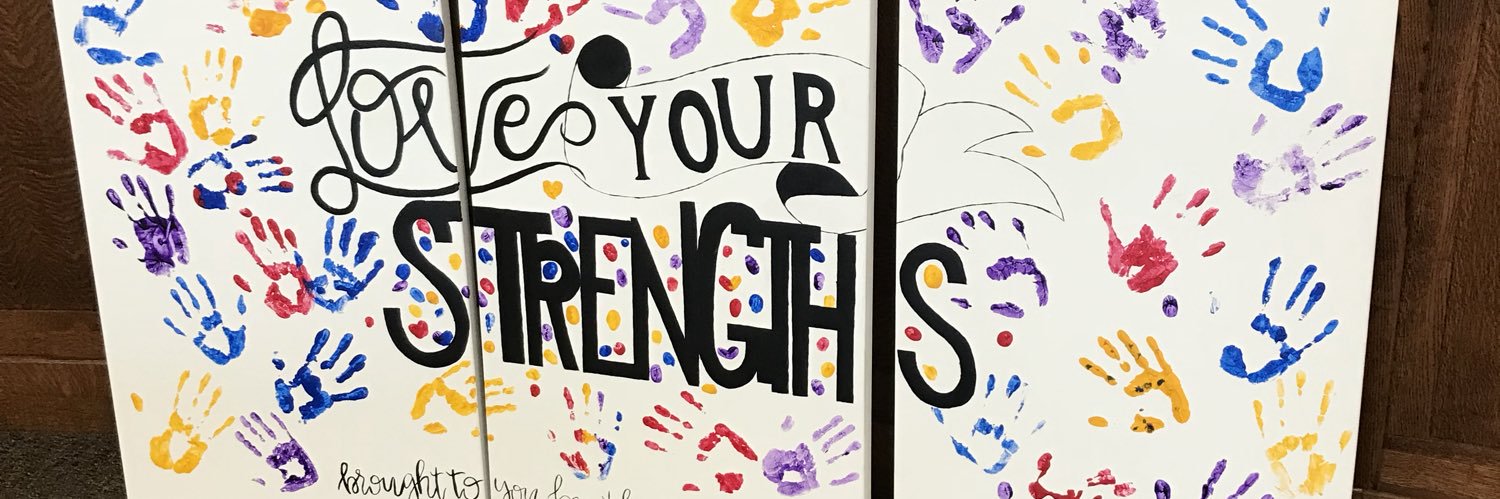 Love YOUR
STRENGTHS
brought to you